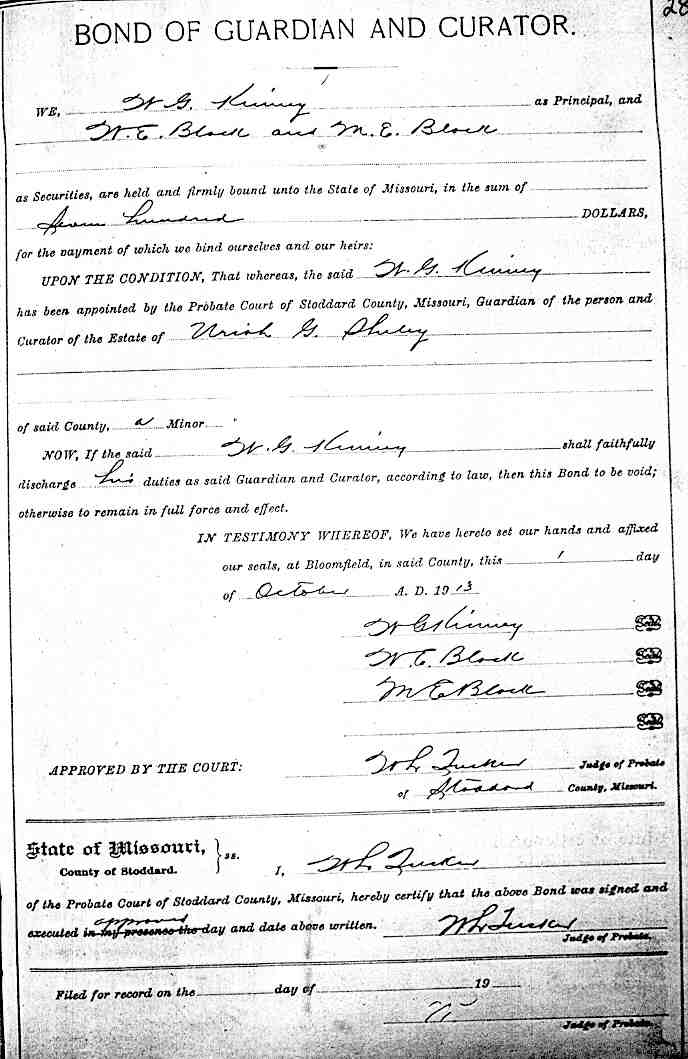 28
BOND OF GUARDIAN AND CURATOR.
WE, W. G. Kinney as Principal, and
W. E. Block and M. E. Block
as Securities, are held and firmly bound unto the State of Missouri, in the sum of
Seven hundred DOLLARS,
for the payment of which we bind ourselves and our heirs:
UPON THE CONDITION, That whereas, the said W. G. Kinney
has been appointed by the Probate Court of Stoddard County, Missouri, Guardian of the person and
Curator of the Estate of Uriah G. Shirley
of said County, a Minor
NOW, If the said W. G. Kinney shall faithfully
discharge his duties as said Guardian and Curator, according to law, then this Bond to be void;
otherwise to remain in full force and effect.
IN TESTIMONY WHEREOF, We have hereto set our hands and affixed
our seals, at Bloomfield, in said County, this 1 day
of October A. D. 1913
W G Kinney Seal
W. E. Block Seal
M E Block Seal
Seal
APPROVED BY THE COURT: W L Tucker Judge of Probate
of Stoddard County, Missouri.
State of Missouri, } ss.
County of Stoddard. I, W L Tucker
of the Probate Court of Stoddard County, Missouri, hereby certify that the above Bond was signed and
approved
executed in my presence the day and date above written. W L Tucker
Judge of Probate.
Filed for record on the day of 19
Judge of Probate.